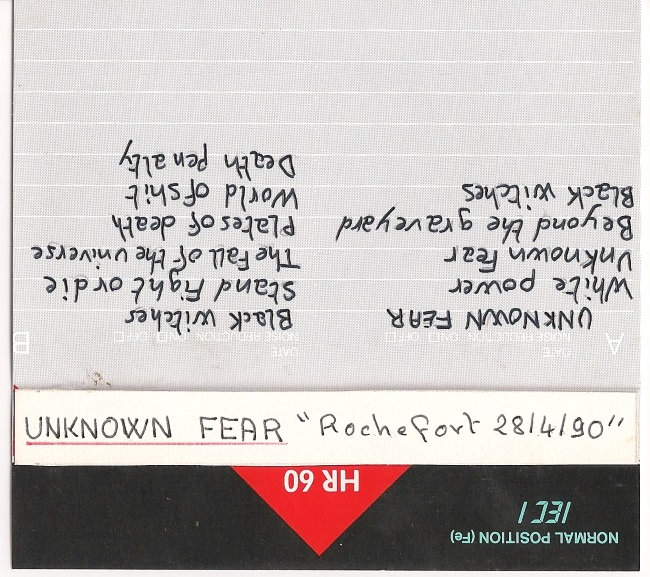 A
DATE
NOISE REDUCTION ON□ OFF□
UNKNOWN FEAR
White power
Unknown Fear
Beyond the graveyard
Black witches
B
DATE
NOISE REDUCTION ON□ OFF□
Black witches
Stand Fight or die
The Fall of the universe
Plates of death
World of shit
Death Penalty
UNKNOWN FEAR "Rochefort 28/4/90"
HR 60
IEC I
NORMAL POSITION (Fe)